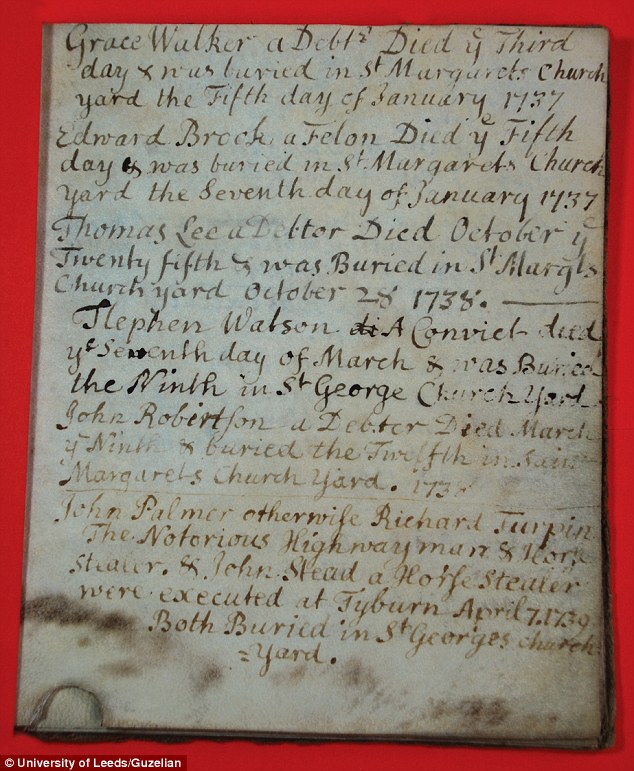 Grace Walker a Debtr Died ye Third
day & was buried in St Margarets Church
yard the Fifth day of January 1737
Edward Brock a Felon Died ye Fifth
day & was buried in St Margarets Church
yard the Seventh day of January 1737
Thomas Lee a Debtor Died October ye
Twenty fifth & was Buried in St Margts
Church yard October 28 1738.
Stephen Watson A Convict died
ye Seventh day of March & was Buried
the Ninth in St George Church Yard
John Robertson a Debtor Died March
ye Ninth & buried the Twelfth in Saint
Margarets Church Yard. 173
John Palmer otherwise Richard Turpin
The Notorious Highway man & Horse
Stealer. & John Stead a Horse Stealer
were executed at Tyburn April 7. 1739
Both Buried in St Georges church
=Yard.
© University of Leeds/Guzelian